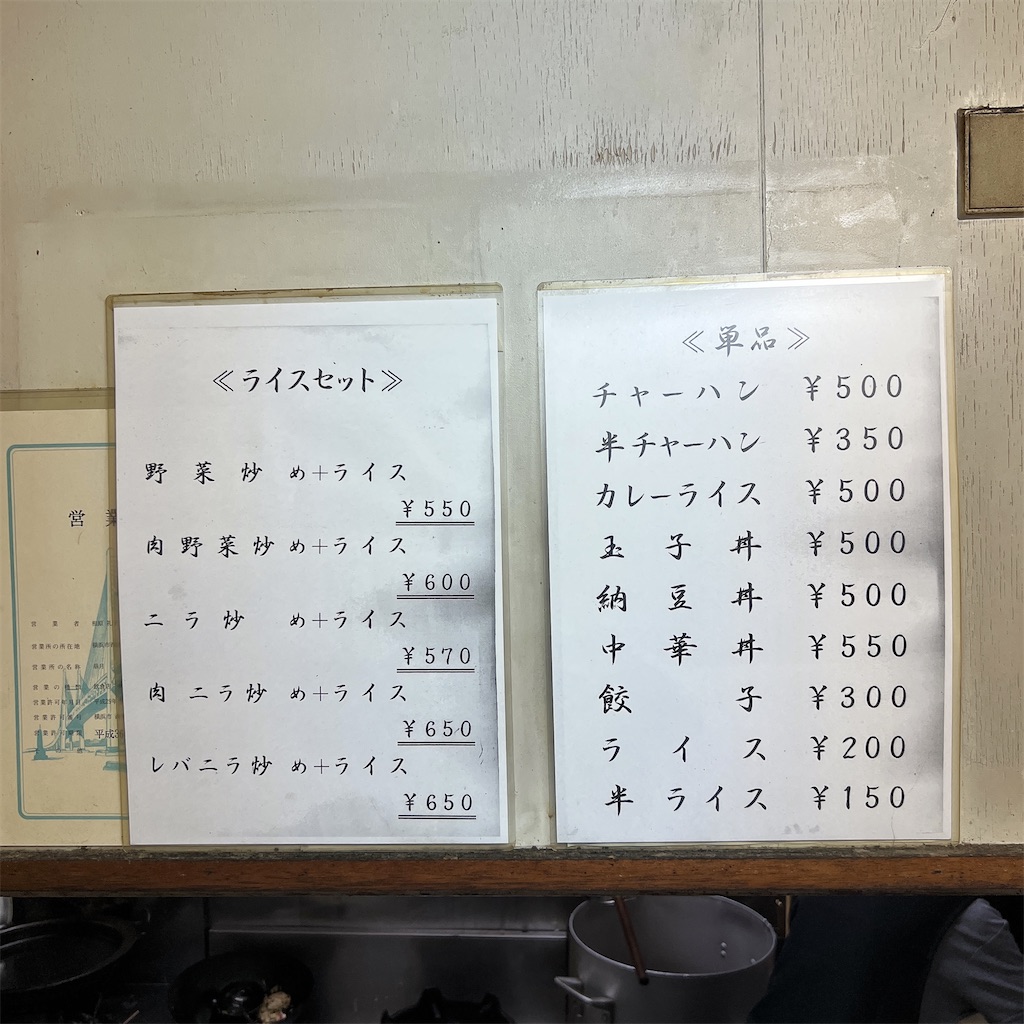 《ライスセット》
野菜炒め+ライス
¥550
肉野菜炒め+ライス
¥600
ニラ炒め+ライス
¥570
肉ニラ炒め+ライス
¥650
レバニラ炒め+ライス
¥650
《単品》
チャーハン ¥500
半チャーハン ¥350
カレーライス ¥500
玉子丼 ¥500
納豆丼 ¥500
中華丼 ¥550
餃子 ¥300
ライス ¥200
半ライス ¥150
営業
営業者
営業所の所在地
営業所の名称
営業の種類
平成